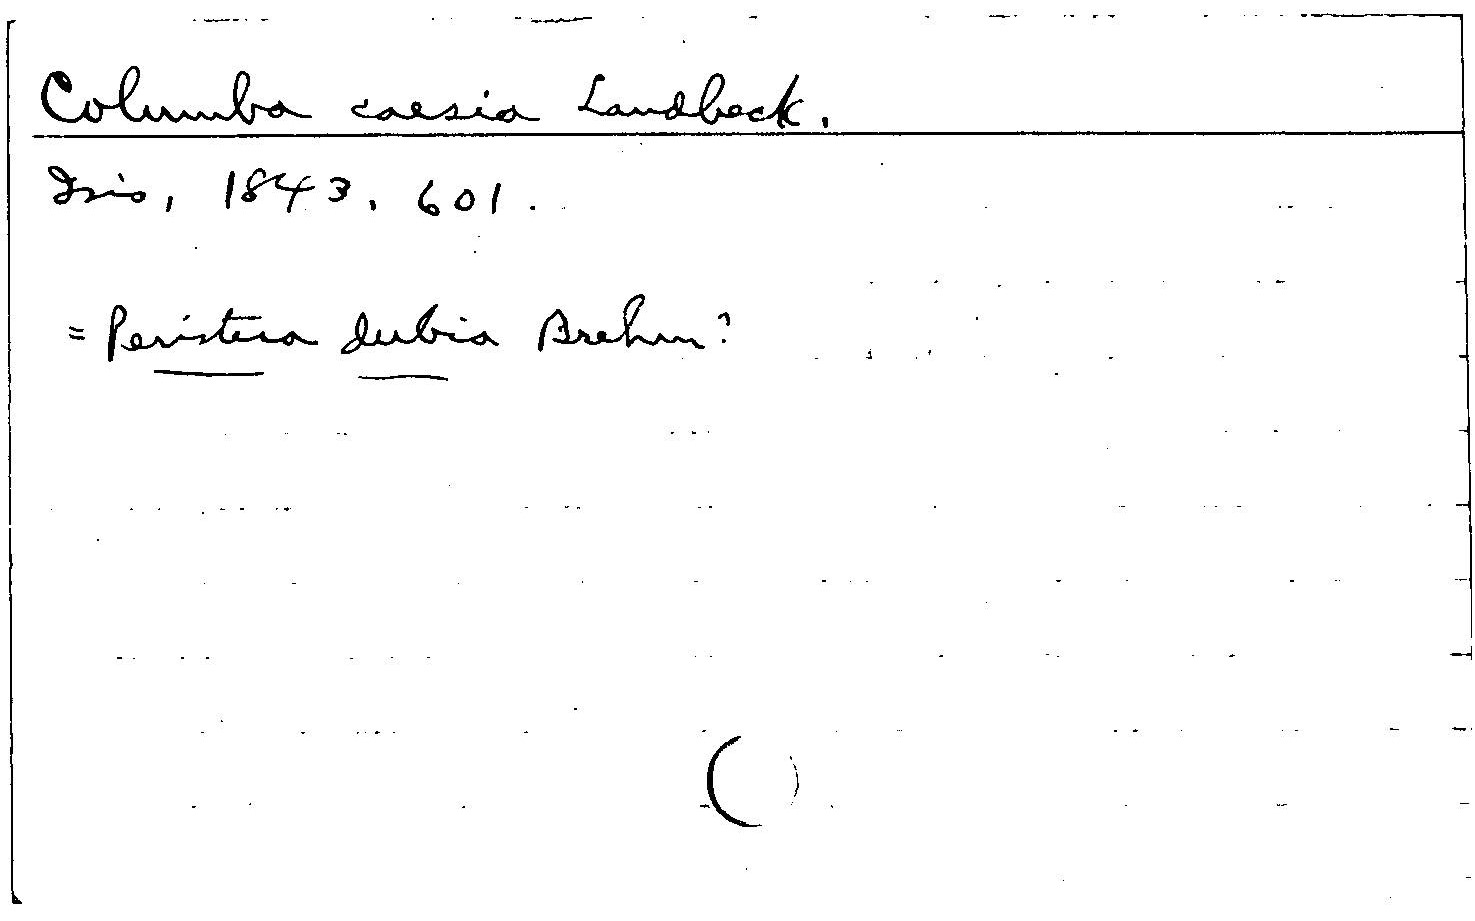 Columba caesia Landbeck.
Isis, 1843, 601.
= Peristera dubia Brehm?